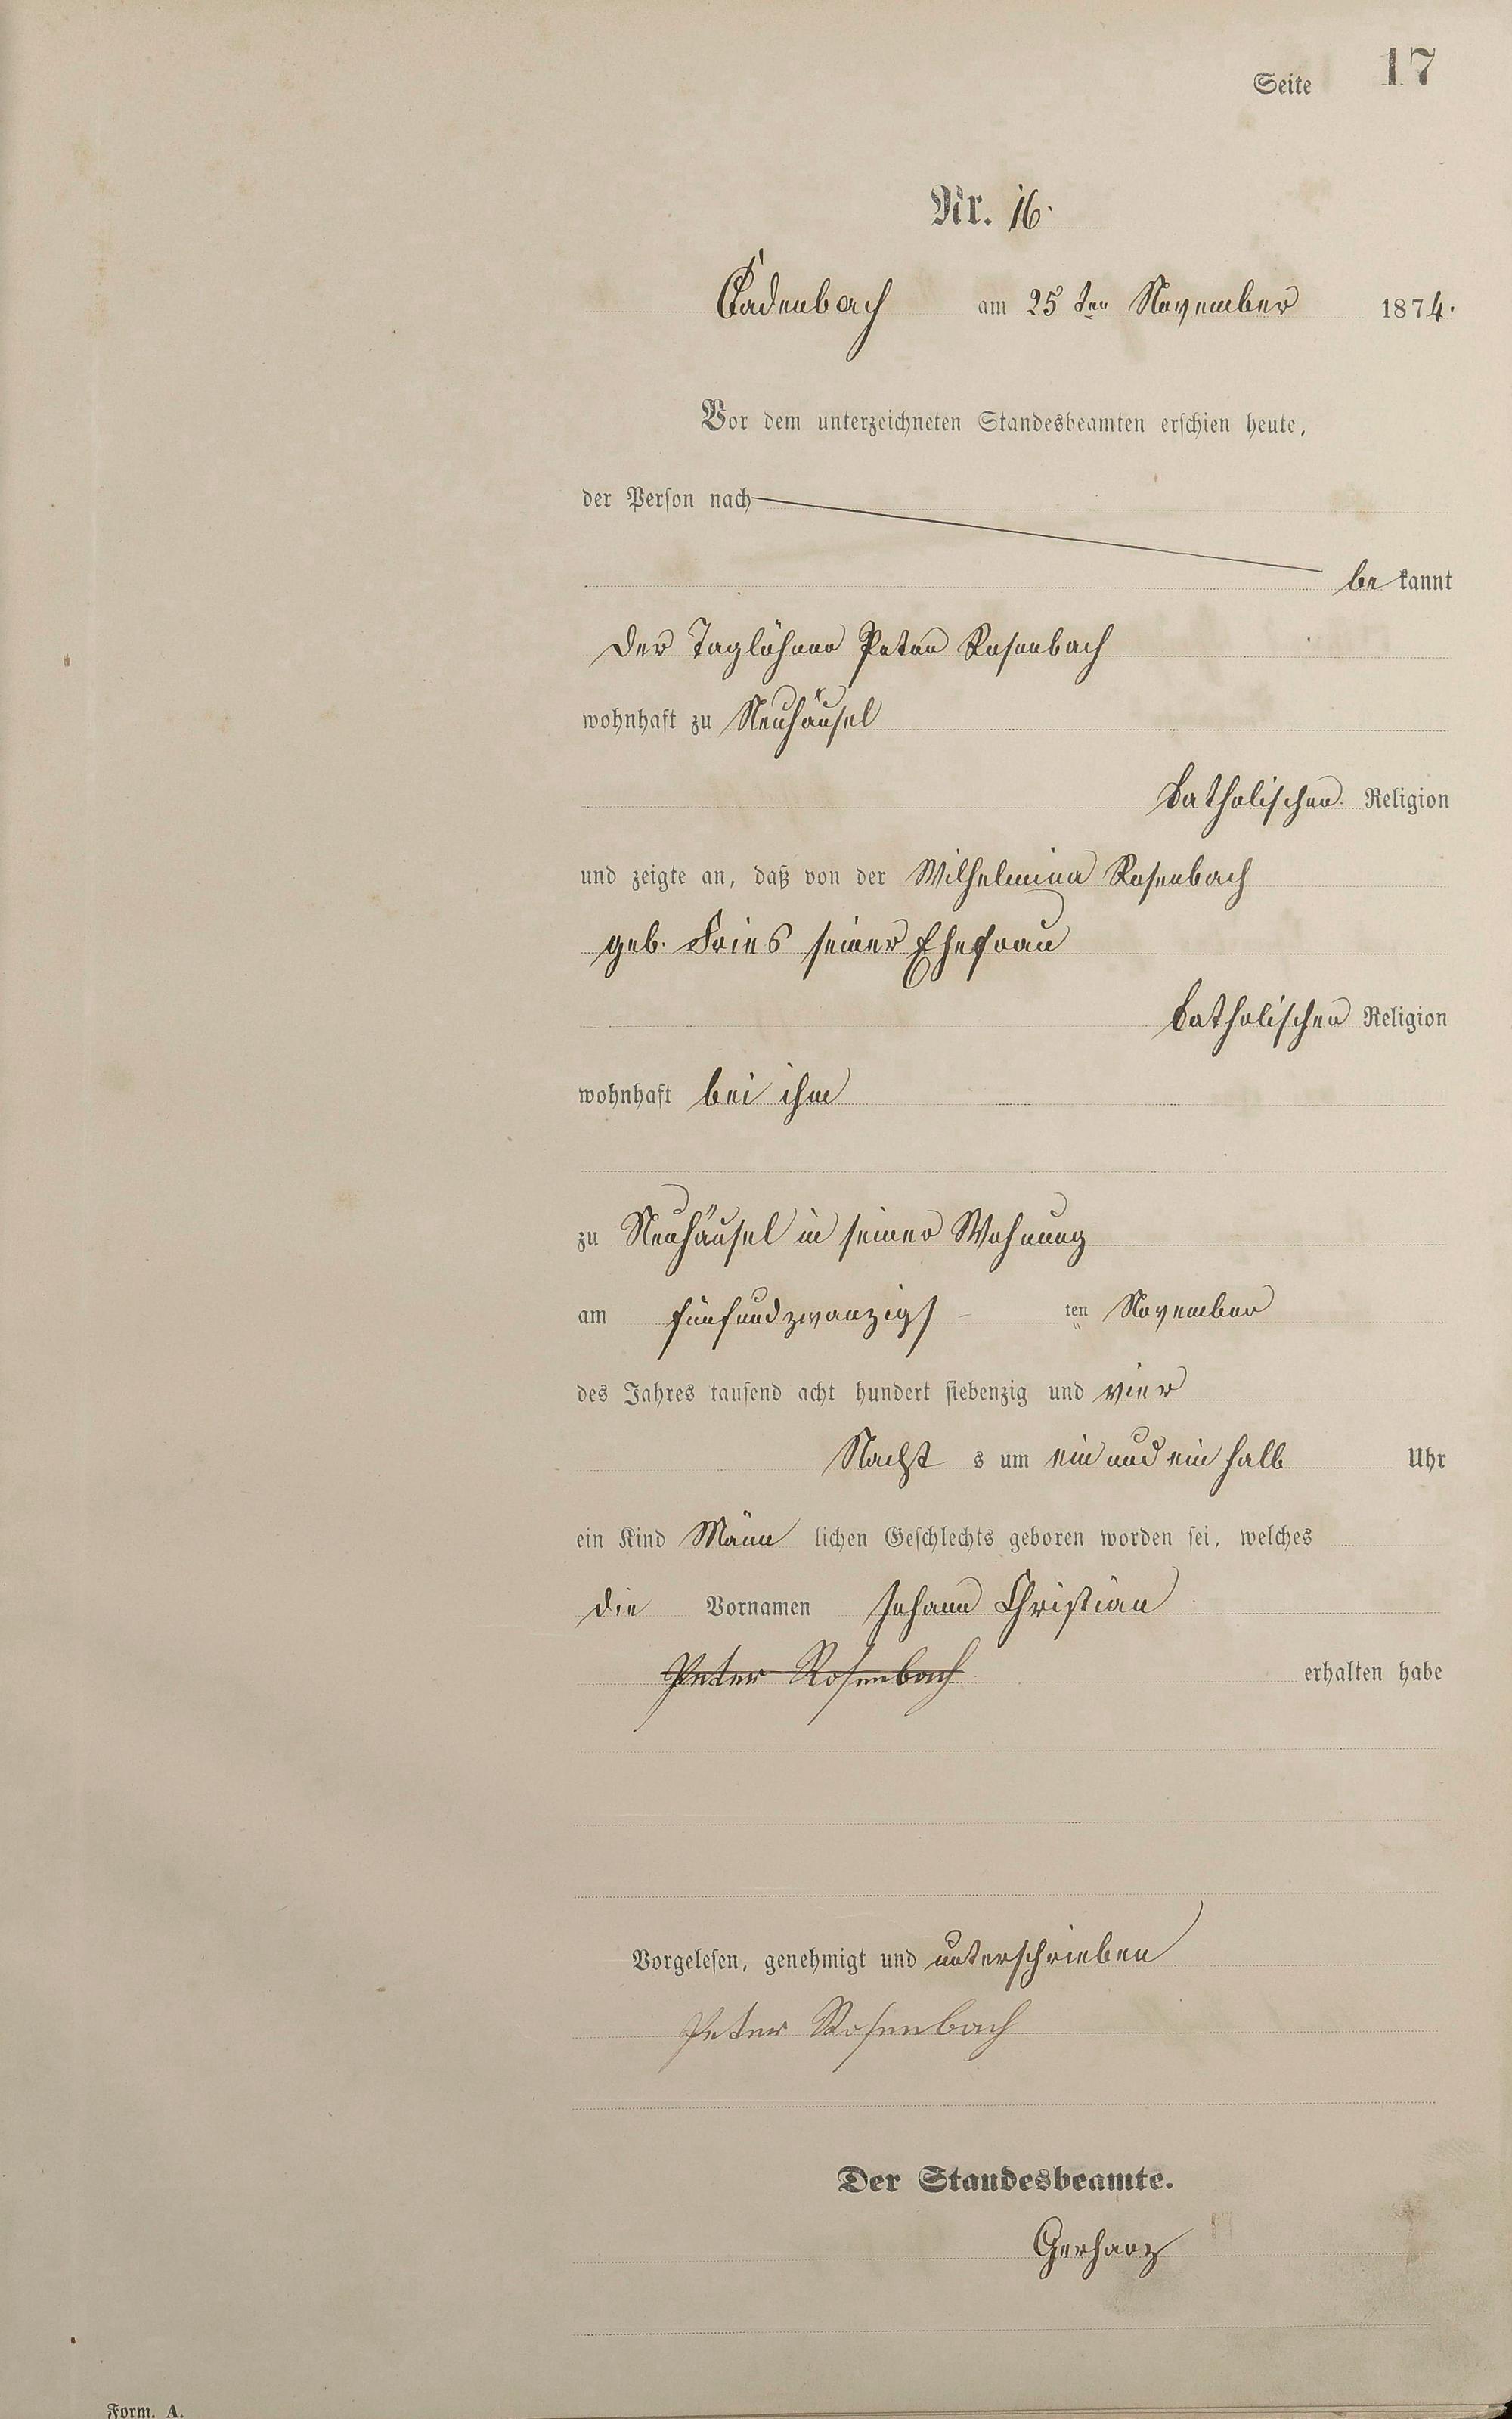 Seite 17
Nr. 16.
Cadenbach am 25 ten November 1874.
Vor dem unterzeichneten Standesbeamten erschien heute,
der Person nach
be kannt
der Taglöhner Peter Rosenbach
wohnhaft zu Neuhäusel
katholischer Religion
und zeigte an, daß von der Wilhelmina Rosenbach
geb. Fries seiner Ehefrau
katholischer Religion
wohnhaft bei ihm
zu Neuhäusel in seiner Wohnung
am fünfundzwanzigs ten November
des Jahres tausend acht hundert siebenzig und vier
Nacht s um ein und ein halb Uhr
ein Kind Männ lichen Geschlechts geboren worden sei, welches
die Vornamen Johann Christian
Peter Rosenbach erhalten habe
Vorgelesen, genehmigt und unterschrieben
Peter Rosenbach
Der Standesbeamte.
Gerharz
Form. A.